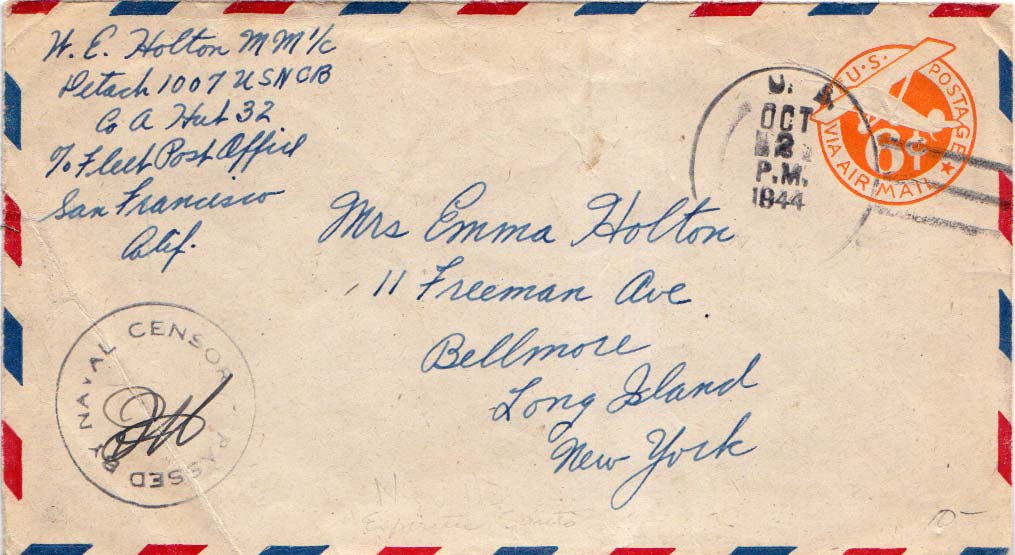 W. E. Holton MM 1/c
Detach 1007 USNCB
Co A Hut 32
℅ Fleet Post Office
San Francisco
Calif.
U. S.
OCT
2
P.M.
1944
U.S. POSTAGE
VIA AIR MAIL
6¢
Mrs Emma Holton
11 Freeman Ave
Bellmore
Long Island
New York
PASSED BY NAVAL CENSOR
Espiritu Santo
10-